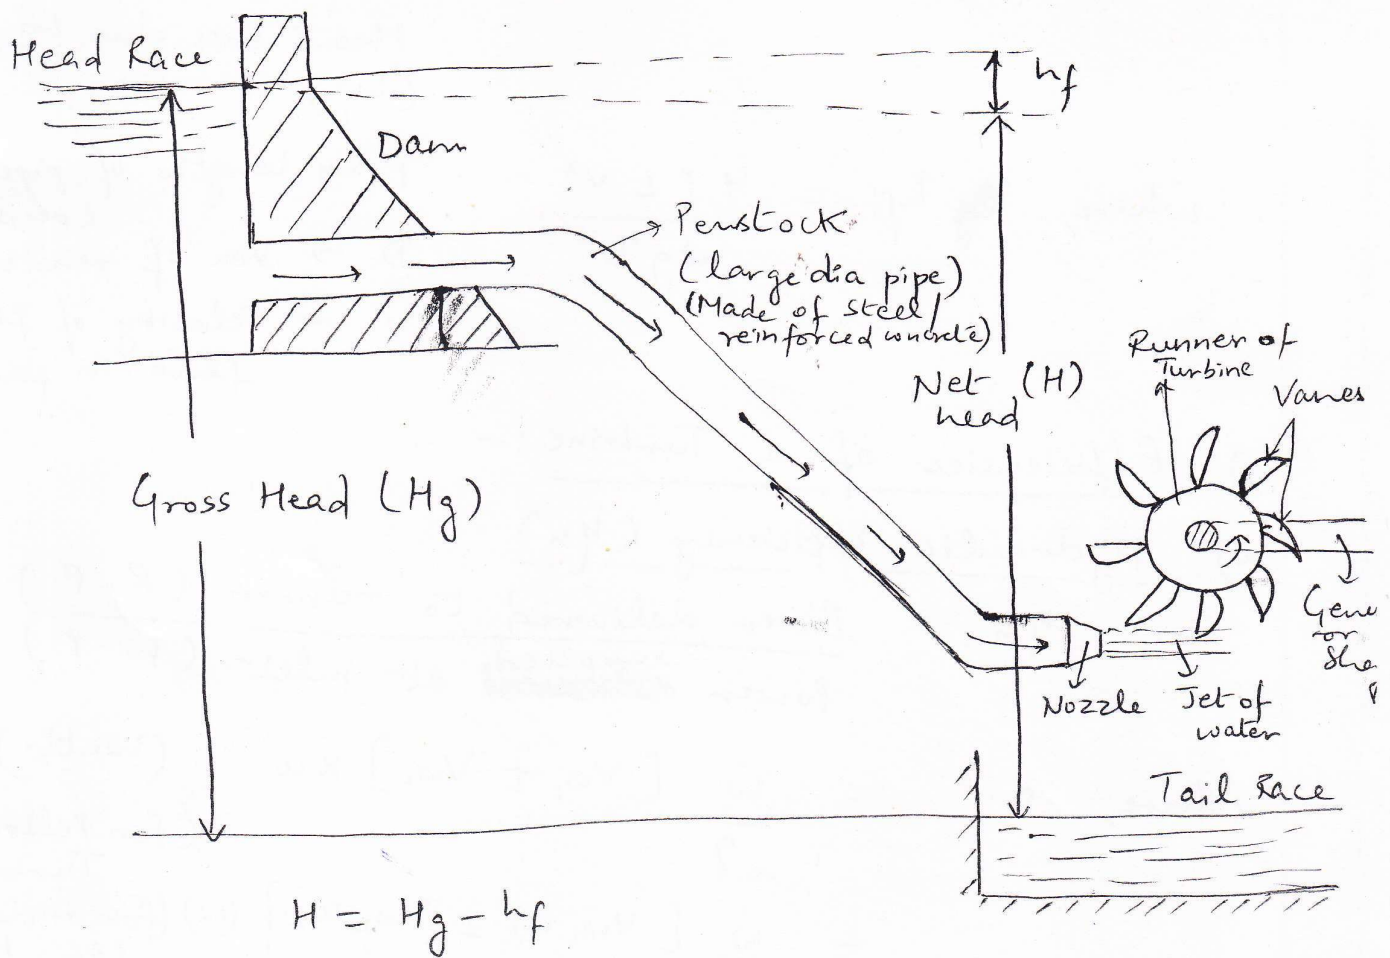 Head Race
hf
Dam
Penstock
(large dia pipe)
(Made of Steel/
reinforced concrete)
Runner of
Turbine
Vanes
Net (H)
head
Gross Head (Hg)
or
Nozzle
Jet of
water
Tail Race
H = Hg - hf